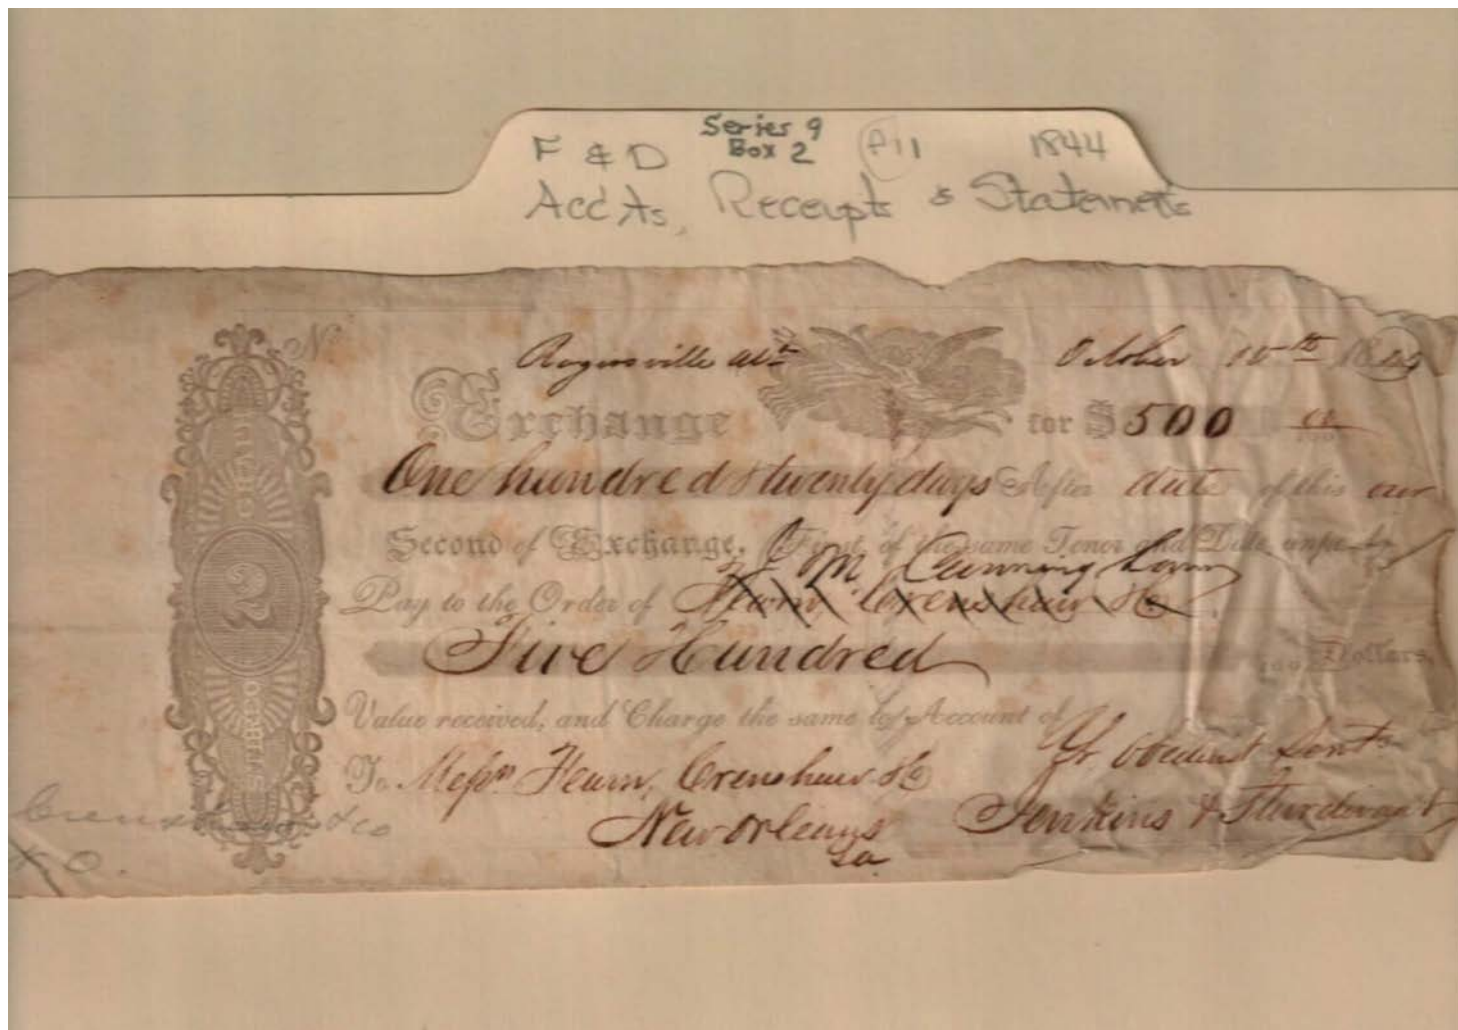 Series 9
F & D Box 2 1844
Acc'ts, Receipts & Statements
No
Rogersville Ala October 18
Exchange for $ 500 00/100
One hundred & twenty days After date of this our
Second of Exchange, First of the same Tenor and Date unpaid
J M Cunningham
Pay to the Order of Fearn Crenshaw & Co
Five Hundred
100 Dollars,
Value received, and Charge the same to Account of
Yr obedient Servts
To Messrs Fearn, Crenshaw & Co
Jenkins & Sturdivant
New Orleans
La
Crenshaw & Co
N.O.
2